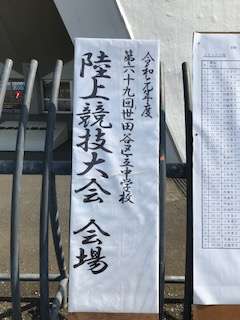 令和元年度
第六十九回世田谷区立中学校
陸上競技大会 会場